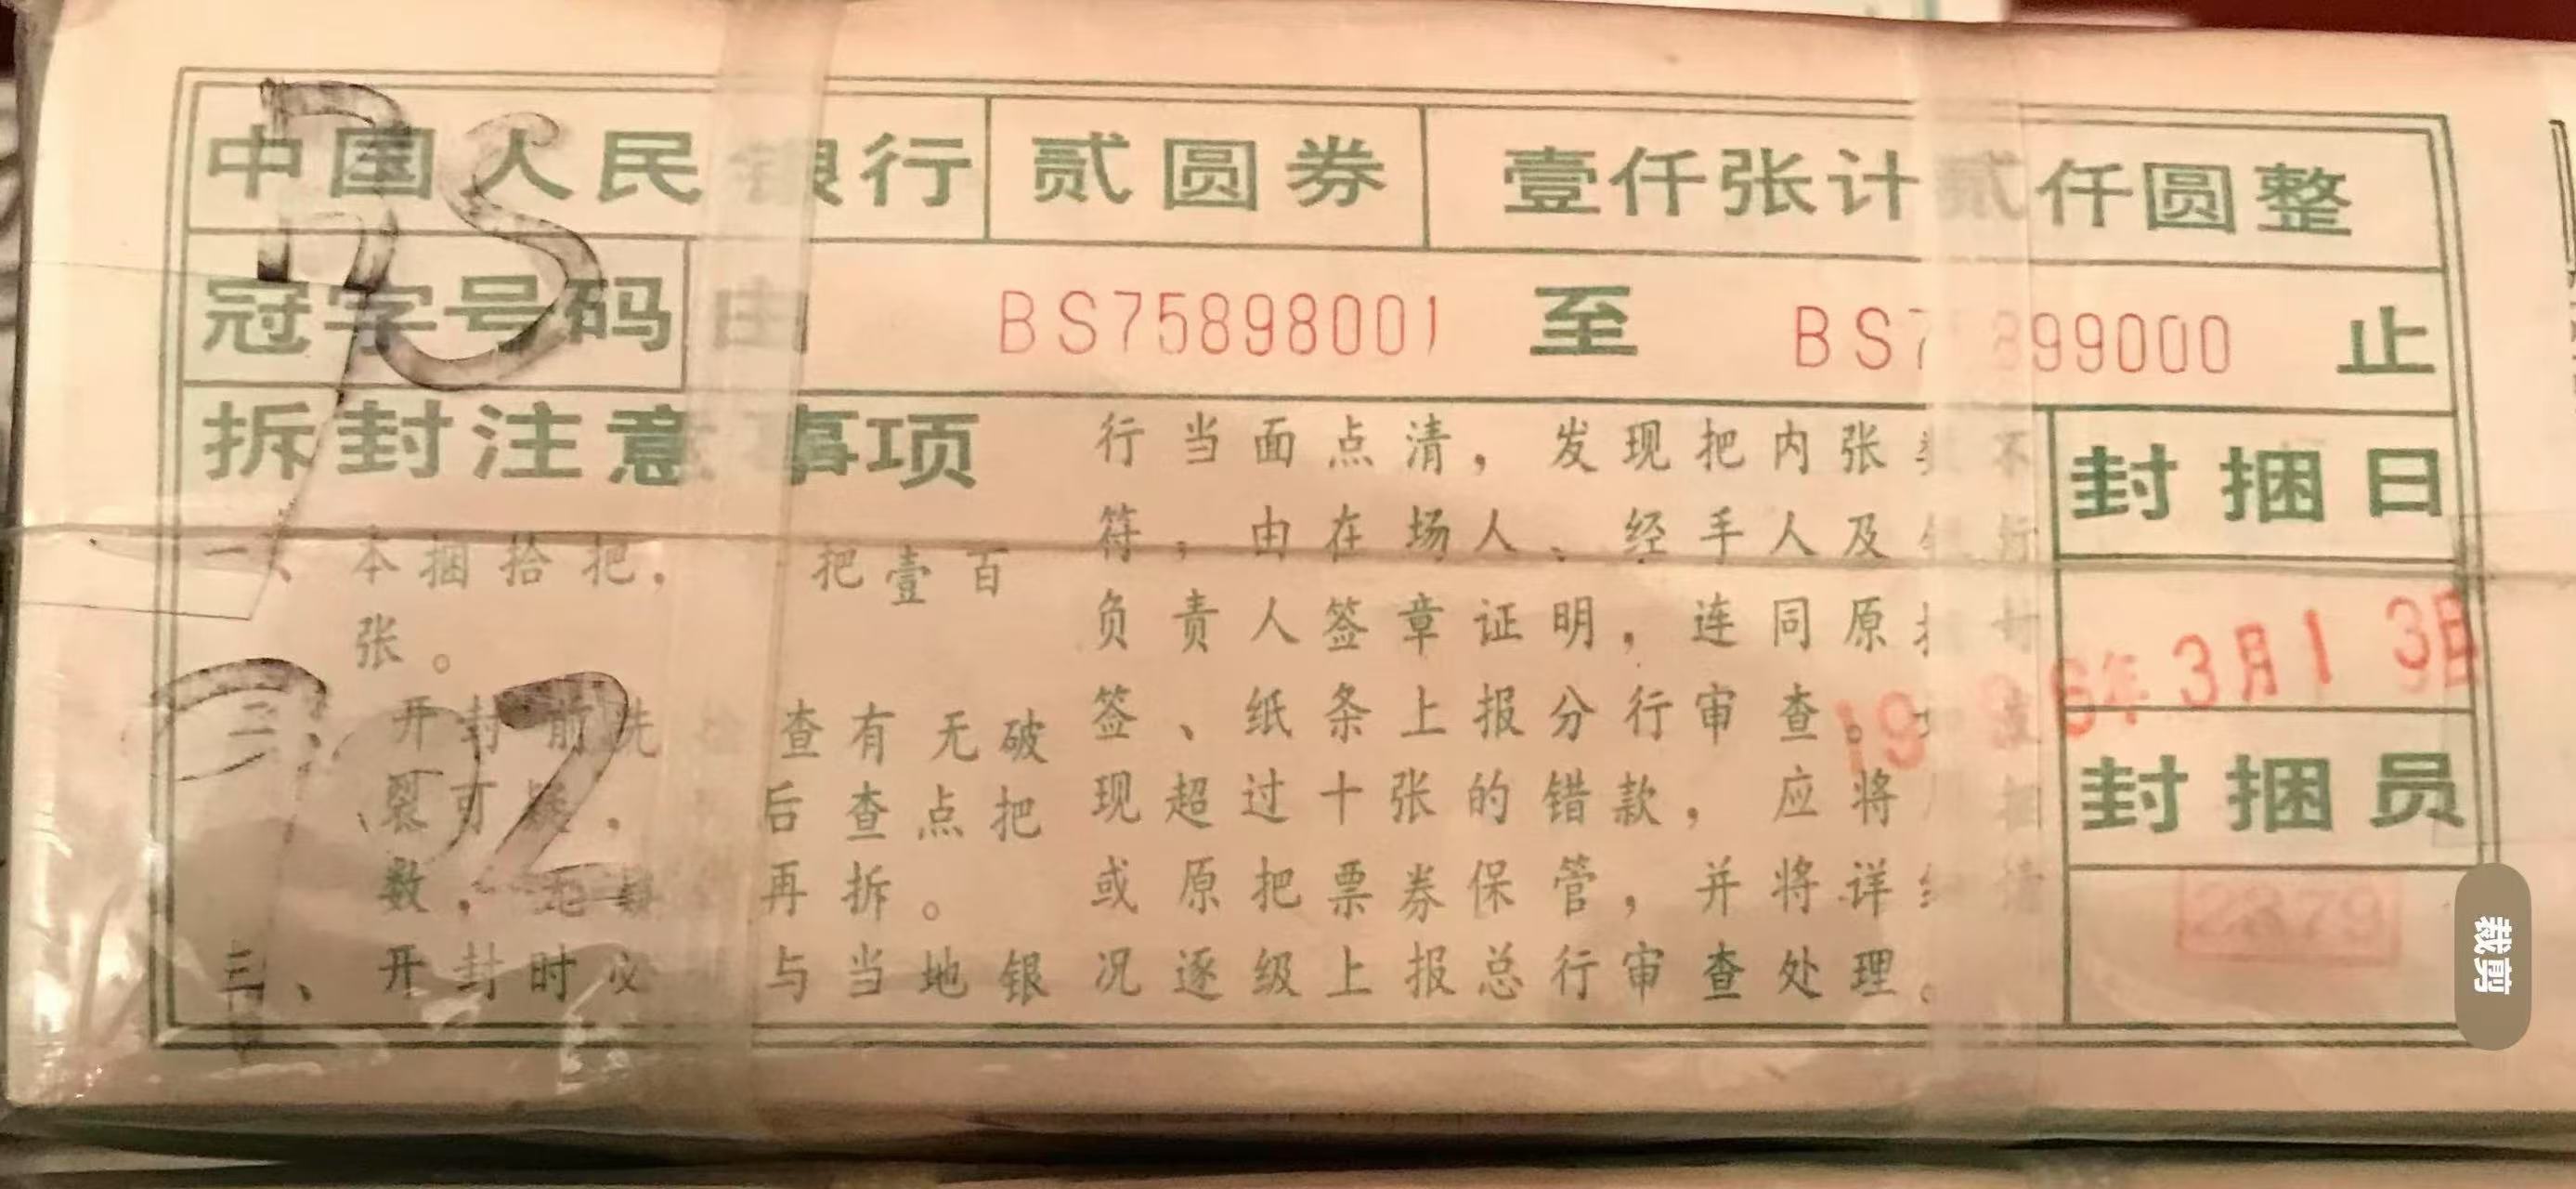 中国人民银行 贰圆券 壹仟张计贰仟圆整
冠字号码 由 BS75898001 至 BS75899000 止
拆封注意事项
一、本捆拾把, 把壹百
张。
二、开封前先 查有无破
裂可疑, 后查点把
数, 无疑 再拆。
三、开封时必 与当地银
行当面点清,发现把内张数不
符,由在场人、经手人及银行
负责人签章证明,连同原捆封
签、纸条上报分行审查。如发
现超过十张的错款,应将 捆
或原把票券保管,并将详细情
况逐级上报总行审查处理。
封捆日
19 6年3月13日
封捆员
2379
BS
902
裁剪